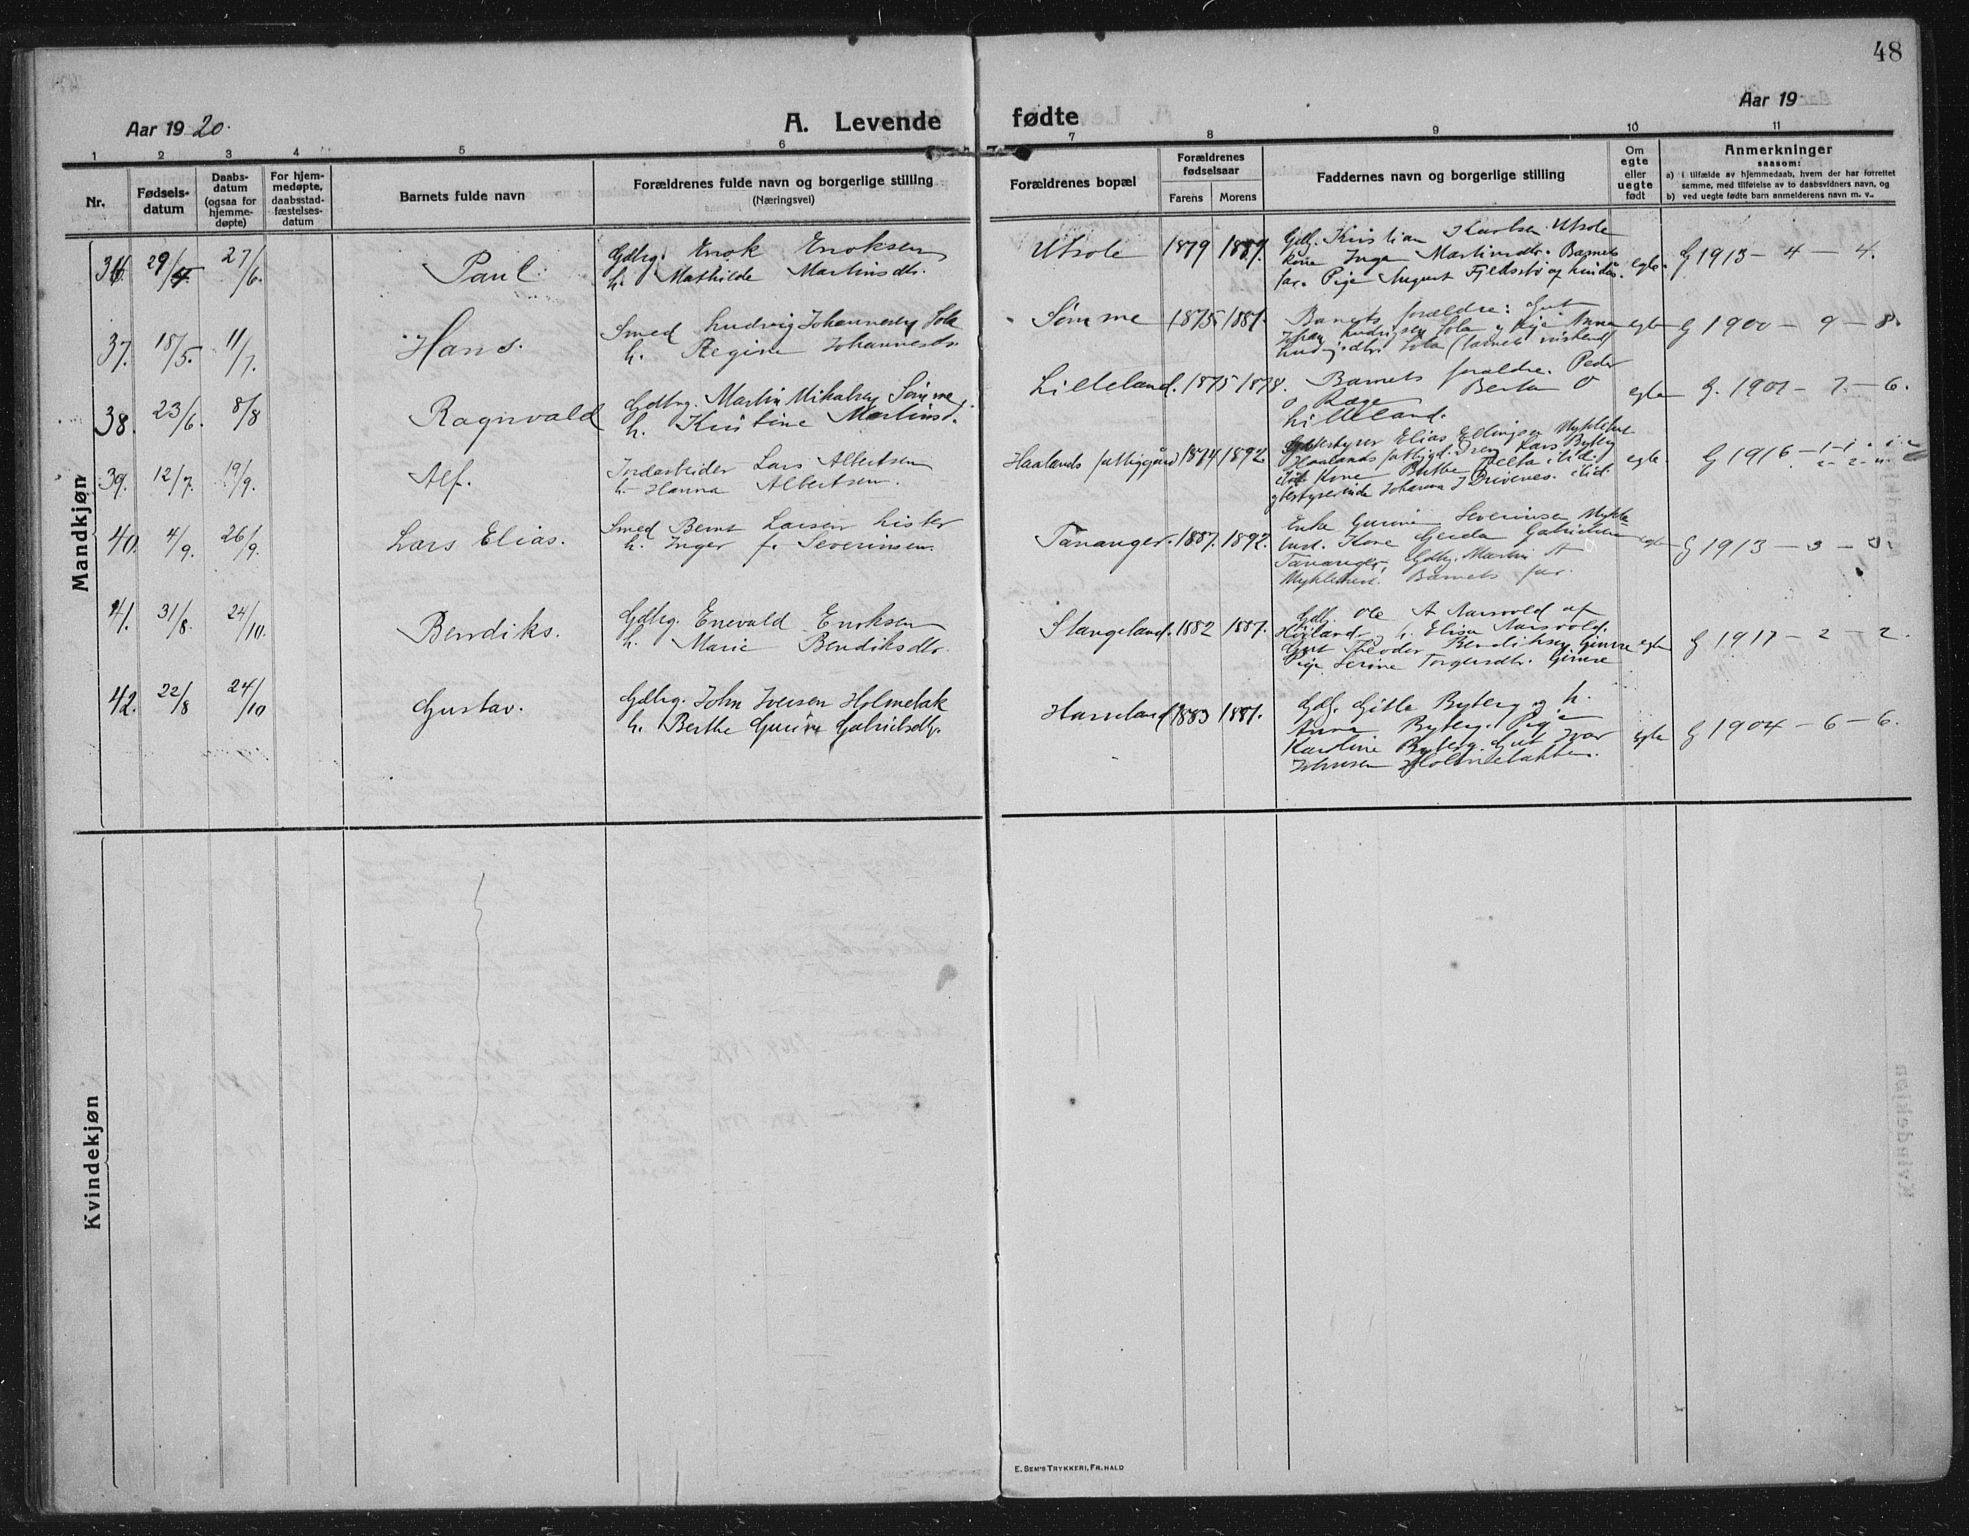 48
Aar 1920.
A. Levende fødte
Aar 19
1 2 3 4 5 6 7 8 9 10 11
Nr.
Fødsels-
datum
Daabs-
datum
(ogsaa for
hjemme-
døpte)
For hjem-
medøpte,
daabsstad-
fæstelses-
datum
Barnets fulde navn
Forældrenes fulde navn og borgerlige stilling
(Næringsvei)
Forældrenes bopæl
Forældrenes
fødselsaar
Farens Morens
Faddernes navn og borgerlige stilling
Om
egte
eller
uegte
født
Anmerkninger
saasom:
a) i tilfælde av hjemmedaab, hvem der har forrettet
semme, med tilføielse av to daabsvidners navn, og
b) ved uegte fødte barn anmelderens navn m. v.
Mandkjøn
36. 29/4 27/6. Paul.
Gdbrg. Enok Enoksen
h. Mathilde Martinsdtr.
Utsole 1879 1889.
Gdbg. Kristian Karlsen Utsole
Kone Inga Martinsdtr. Barnets
far. Pige August Fjeldstø
egte. G 1913 - 4 - 4.
37. 18/5. 11/7. Hans.
Smed Ludvig Johannesen Sola
h. Regine Johannesdtr.
Sømme 1875 1881.
Barnets forældre: Gut
Johan Ludvigsen Sola og Pige Anna
Ludvigsdtr. Sola
egte G 1900 - 9 - 8.
38. 23/6. 8/8 Ragnvald
Gdbrg. Martin Mikalsen Sømme
h. Kristine Martinsd.
Lilleland. 1875 1878.
Barnets forældre. Peder
O Ræge Berta O
Lilleland.
egte G. 1901 - 7 - 6.
39. 12/7. 19/9. Alf.
Jordarbeider Lars Albertsen
h. Hanna Albertsen.
Haalands fattiggård 1874 1892.
Gbestyrer Elias Ellingsen Myklebust
Haalands fattigd. Dreng Lars Byberg
Kone Berthe
gbestyrerinde Johanna J Drivenes. ibid.
egte. G 1916
40. 4/9. 26/9. Lars Elias.
Smed Bernt Larsen Lister
h. Inger f. Severinsen.
Tananger. 1887. 1892.
Enke Gurine Severinsen Mykle
bust. Kone Gerda Gabrielsen
Tananger, Gdbg. Martin A
Myklebust. Barnets far.
egte G 1913 - 3 - 3.
41. 31/8. 24/10. Bendiks.
Gdbrg. Enevald Enoksen
h. Marie Bendiksdtr.
Stangeland. 1882 1887.
Gdbg. Ole A Aarsvold af
Høiland og h. Elisa Aarsvold.
Gut Theodor Bendiksen Gimre
Pige Serine Torgersdtr. Gimre
egte G 1917 - 2 - 2.
42. 22/8 24/10 Gustav.
Gdbrg. John Iversen Holmetak
h. Berthe Gurine Gabrielsdtr.
Harreland 1883 1881.
Gdbg. Gitle Byberg og h.
Anna Byberg. Pige
Karoline Byberg. Gut Ivar
Johnsen Holmetakken.
egte G 1904 - 6 - 6.
Kvindekjøn
E. Sem's Trykkeri, Fr.hald